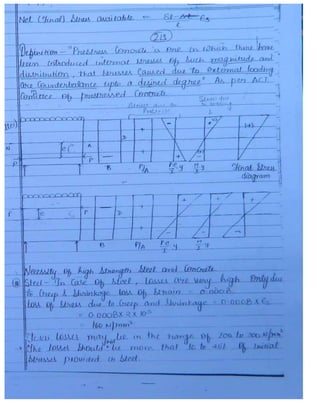 Net (final) Stress available = Si - 
(213)
Definition - "Prestress Concrete is one in which there have
been introduced internal stresses of such magnitude and
distribution, that stresses caused due to external loading
are counterbalance upto a desired degree" As per ACI
Committee of prestressed Concrete.
Stress due to
Prestress
Stress due
to loading
P
B
D
P/A
y
M/I y
Final Stress
diagram
P
e
P
D
B
P/A
y
M/I y
Necessity of high Strength Steel and Concrete
Steel - In Case of Steel, losses are very high Only due
to Creep & Shrinkage loss of Strain = 0.0008
Loss of Stress due to Creep and Shrinkage = 0.0008 x Es
= 0.0008 x 2 x 10⁵
= 160 N/mm²
losses may lie in the range of 200 to 300 N/mm²
The losses should be more that 10 to of initial
Stresses provided in Steel.